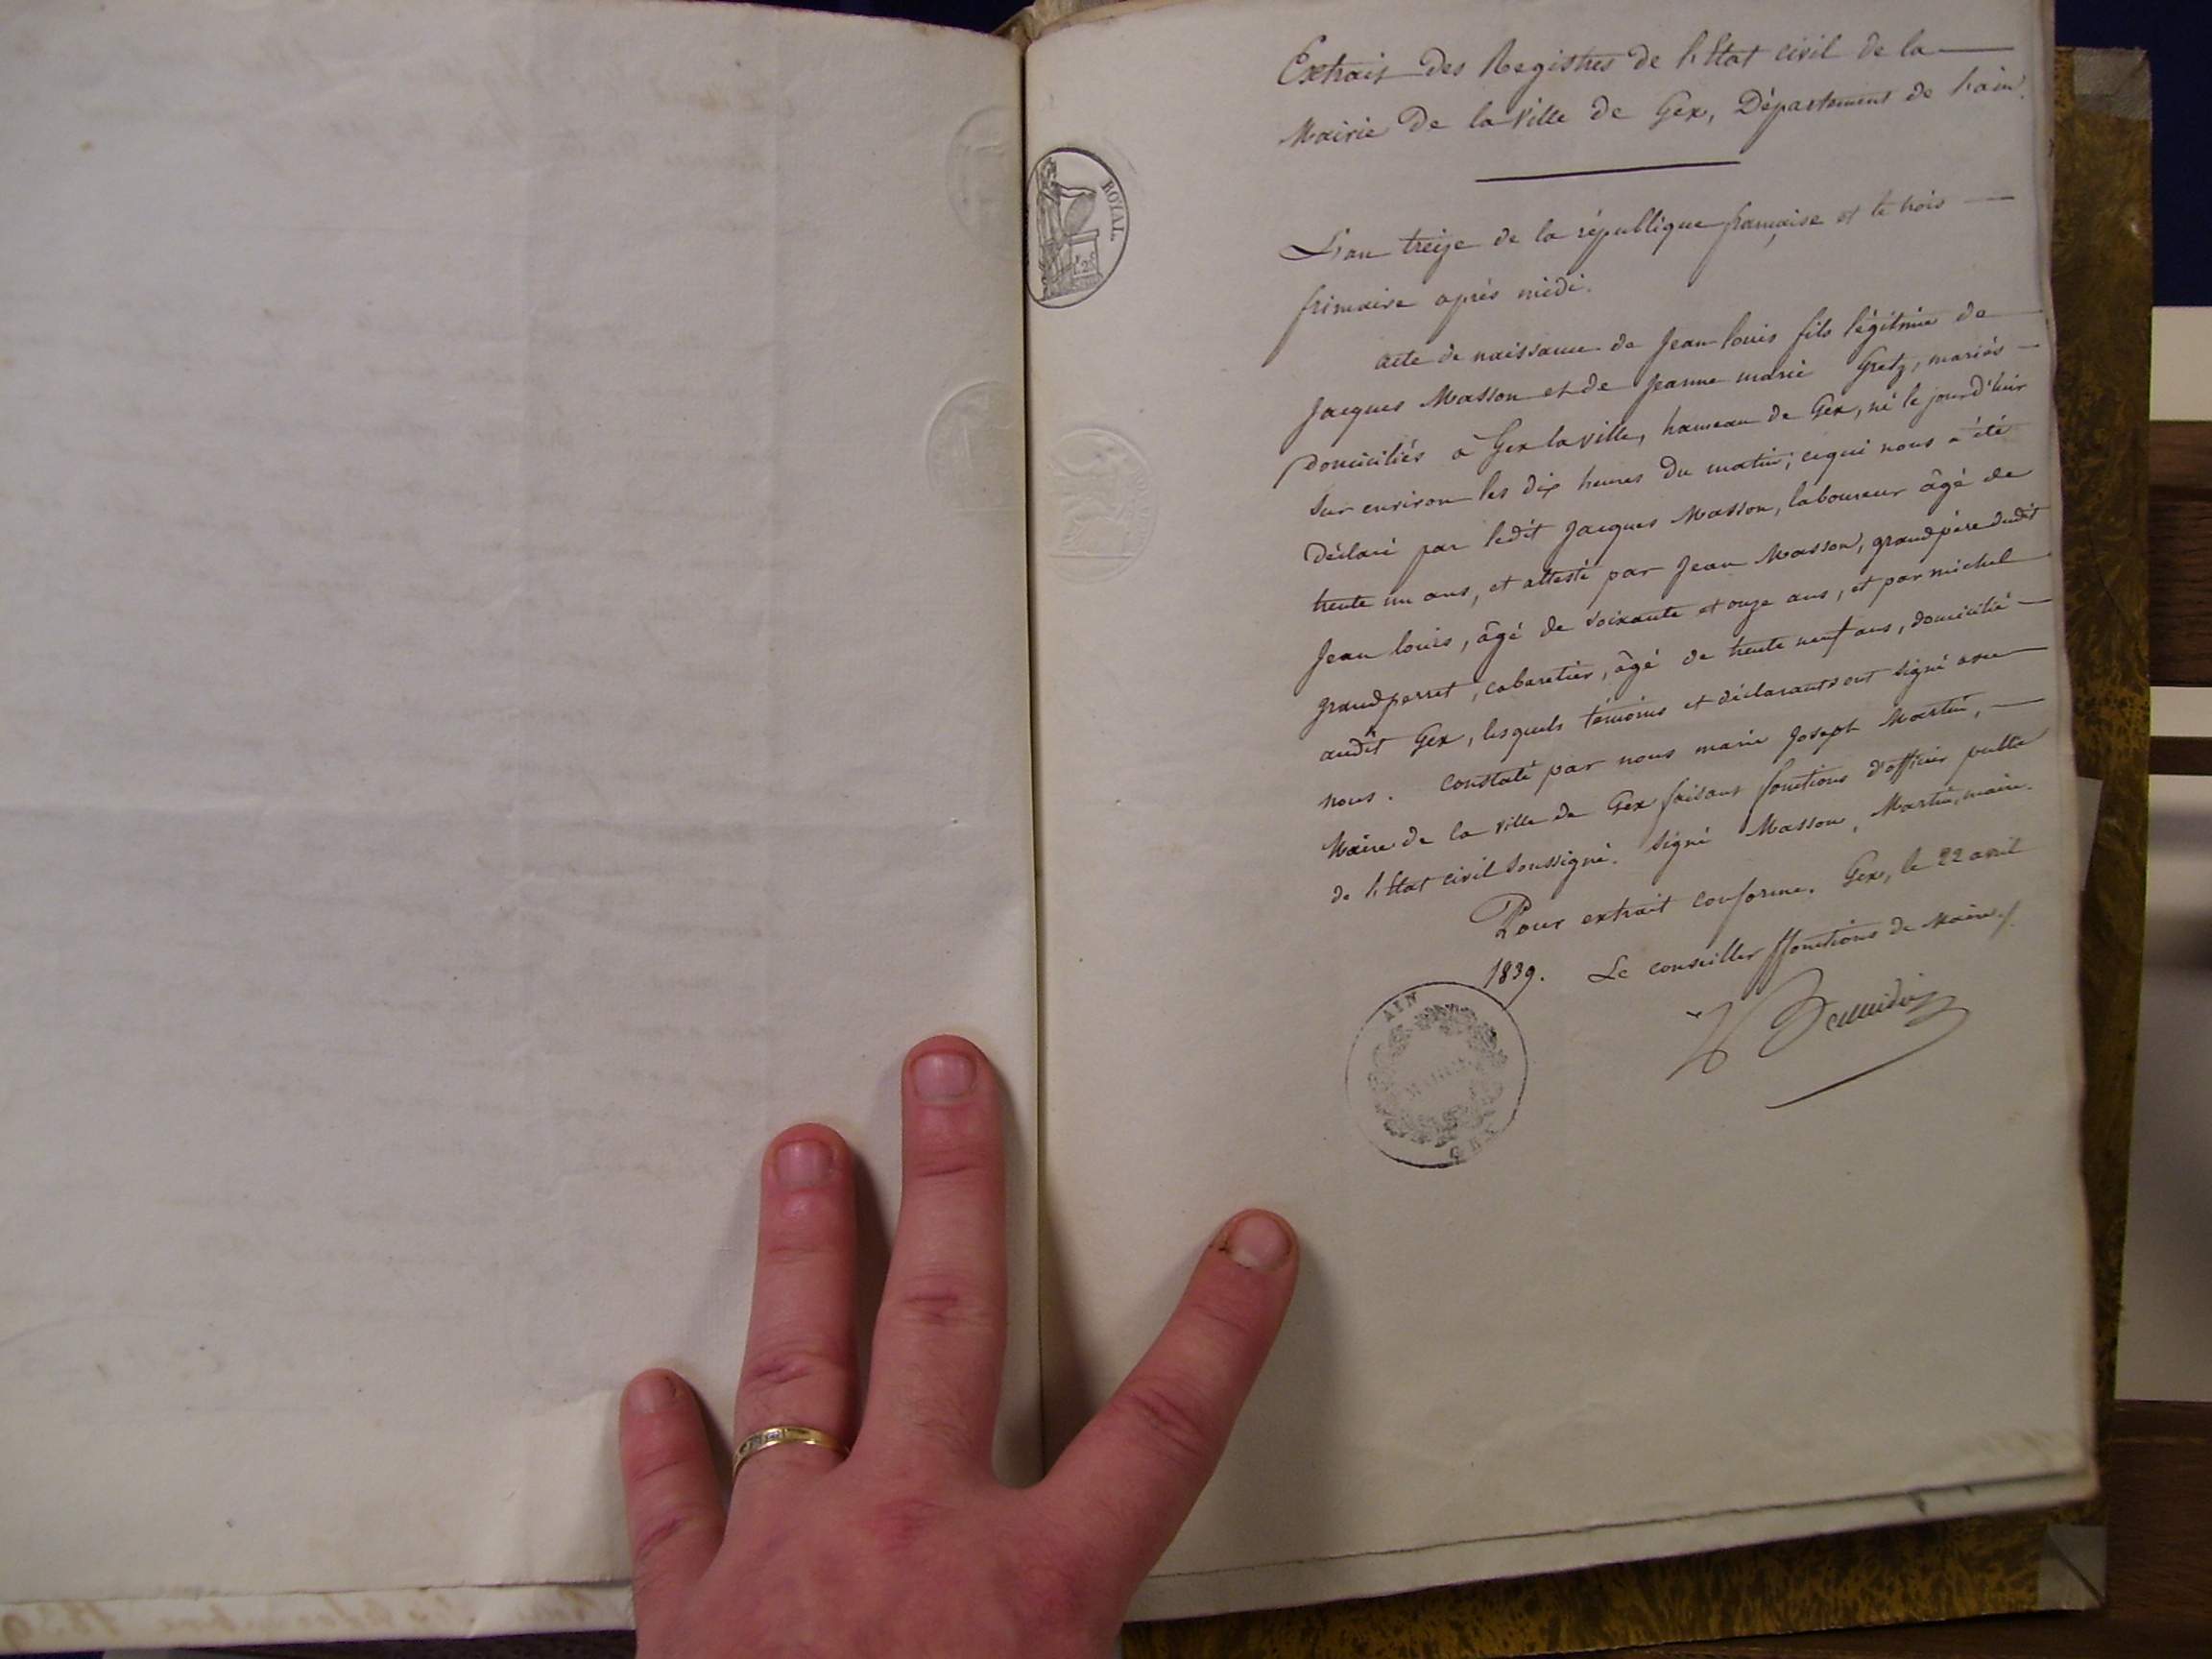 Extrait des Registres de l'Etat civil de la
Mairie de la Ville de Gex, Département de l'ain.
L'an treize de la république française et le trois
frimaire après midi.
acte de naissance de Jean louis fils légitime de
Jacques Masson et de Jeanne marie Gretz, mariés
domiciliés à Gex la ville, hameau de Gex, né le jourd'hui
sur environ les dix heures du matin; ce qui nous a été
déclaré par ledit Jacques Masson, laboureur âgé de
trente un ans, et attesté par Jean Masson, grand père dudit
Jean louis, âgé de soixante et onze ans, et par michel
grandperret, cabaretier, âgé de trente neuf ans, domicilié
audit Gex, lesquels témoins et déclarants ont signé avec
nous. Constaté par nous marie Joseph Martin,
Maire de la ville de Gex faisant fonctions d'officier public
de l'Etat civil soussigné. signé Masson, Martin, maire.
Pour extrait conforme. Gex, le 22 avril
1839. Le conseiller ffonctions de Maire
ROYAL
1.25
AIN
MAIRIE
GEX
1839